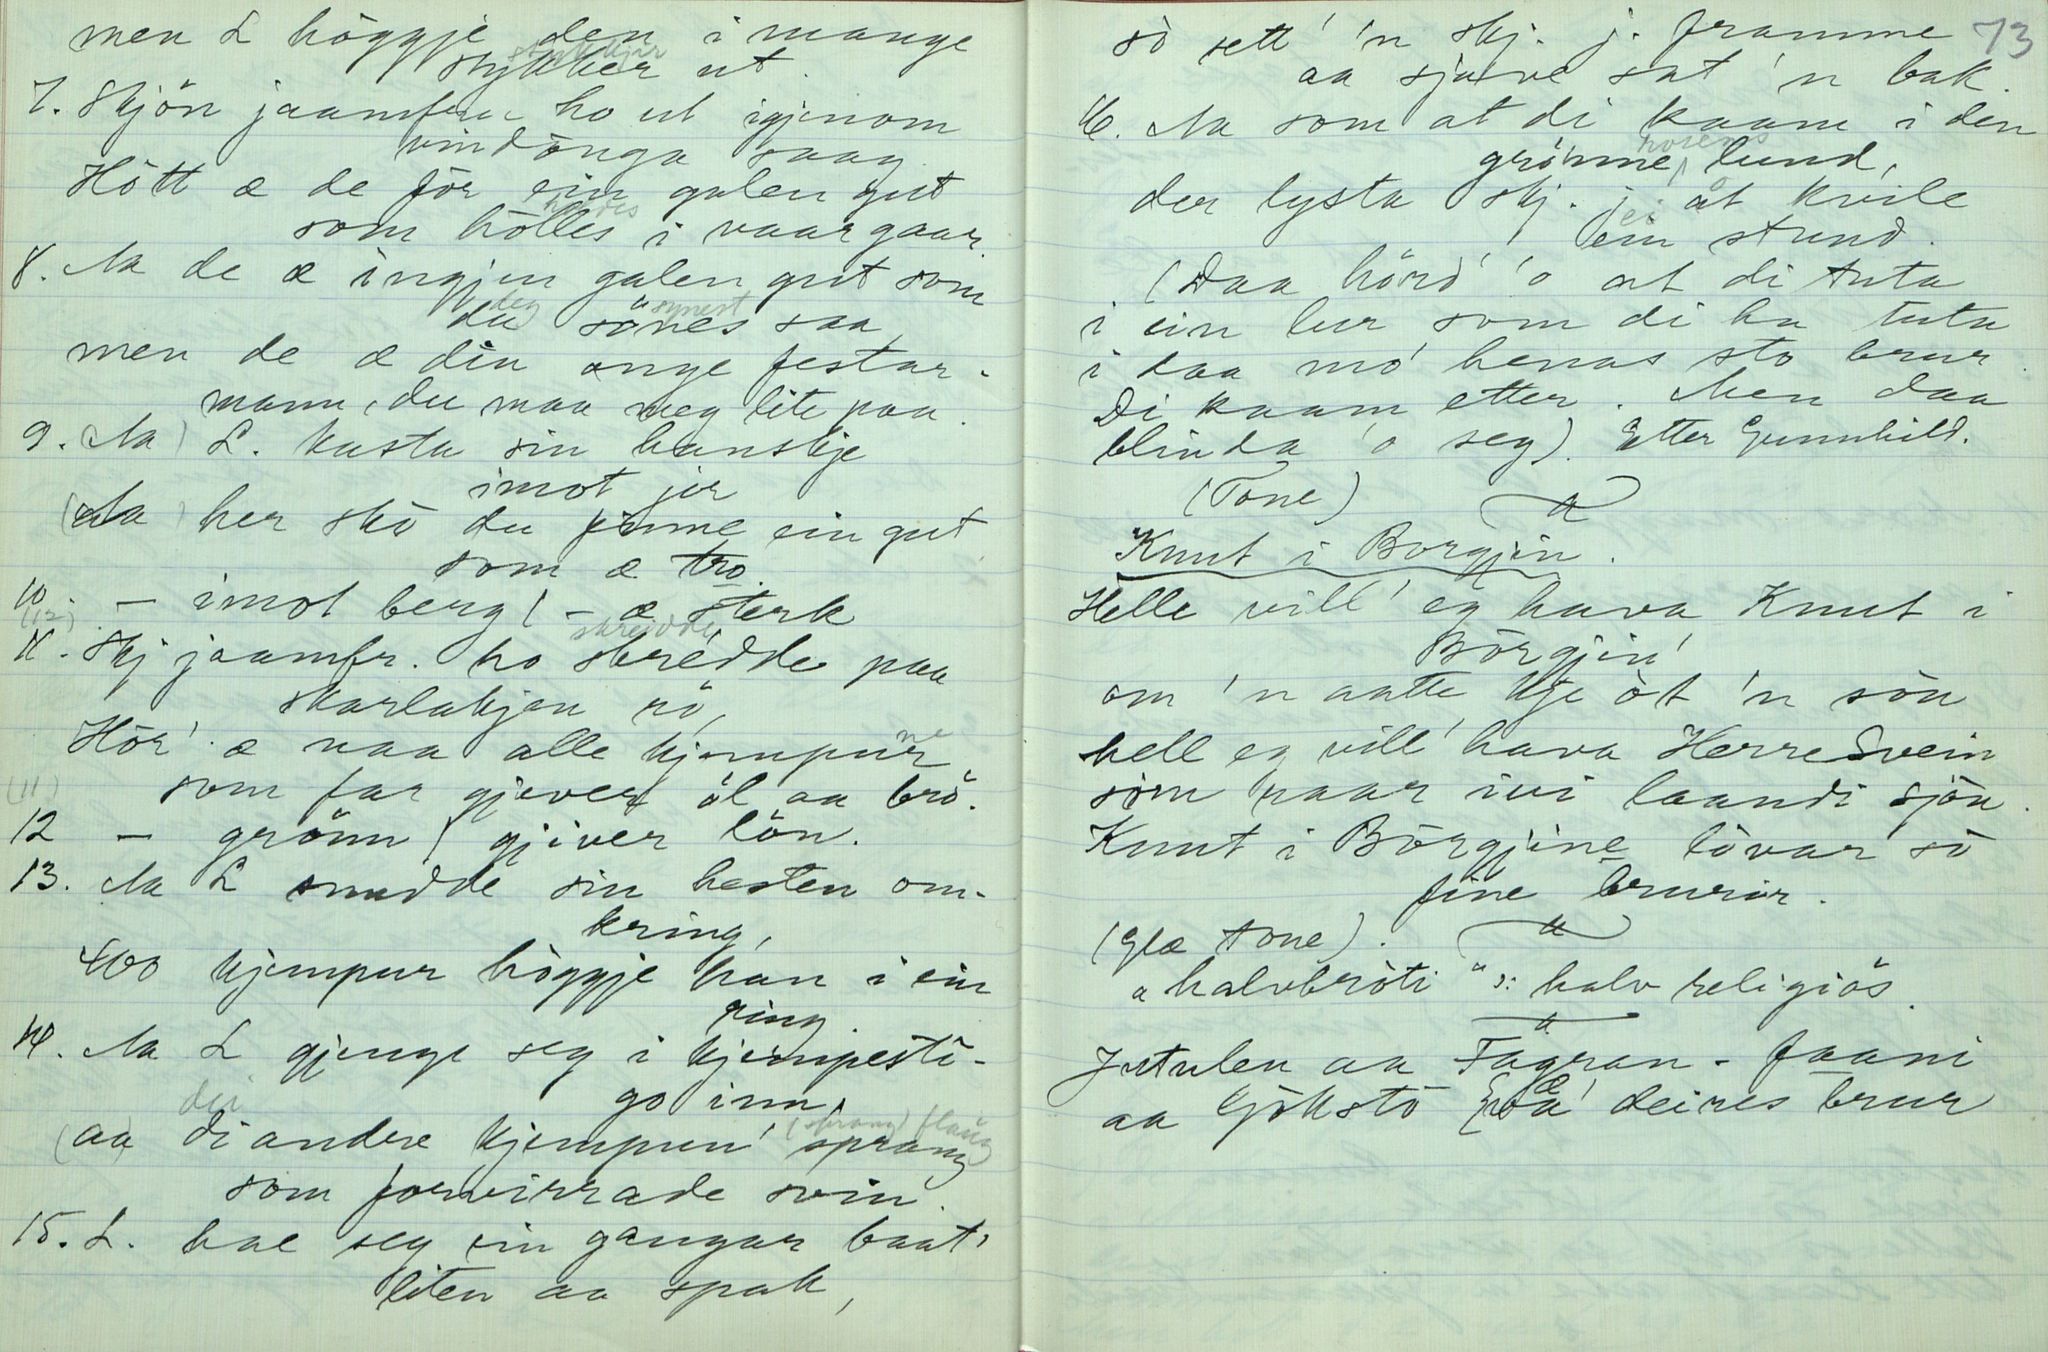 men L höggje den i mange
stykkjir
stykker ut.
7. Skjön jaamfru ho ut igjenom
vindönga saag
Hött æ de för ein galen gut
som hölles i vaar gaar.
8. Aa de æ ingjen galen gut som
deg synest
du sönes saa
men de æ din unge festar-
mann, du maa meg lite paa.
9. (Aa) L. kasta sin hanskje
imot jer
(Aa) her skö du finne ein gut
som æ tro.
10. — imot berg / — æ sterk
(12)
11. Skj jaamfr. ho skredde paa
skarlakjen rö,
Hör' æ naa alle kjempur
ne
(11) som far gjever öl aa brö.
12 — grönn / gjiver lön.
13. Aa L snudde sin hesten om-
kring,
400 kjempur höggje han i ein
ring.
14. Aa L gjenge seg i kjempesti-
go inn,
dei
(aa) di andre kjempun' sprang
(sprang) flaug
som forvirrade svin.
15. L. hae seg ein gangar baat'
liten aa spak,
73
sö sett' 'n skj. j. framme
aa sjølve sat 'n bak.
16. Aa som at di kaam i den
rosens
grönne, lund,
der lysta skj. j. at kvile
ei
ein stund.
(Daa hörd' 'o at di tuta
i ein lur som di ha tuta
i daa mo' henas sto brur.
Di kaam etter. Men daa
blinda 'o seg). Etter Gunnhild.
(Tone)
Knut i Borgjin.
Helle vill' eg hava Knut i
Börgjin'
om 'n aatte kje öt 'n sön
hell eg vill' hava Herre Svein
som raar ivi laandi sjön.
Knut i Börgjine lövar sö
fine brurir.
(Glæ tone).
"halvbröti" ɔ: halv religiös.
Jutulen aa Fagran - faani
aa Gjökstö deires brur